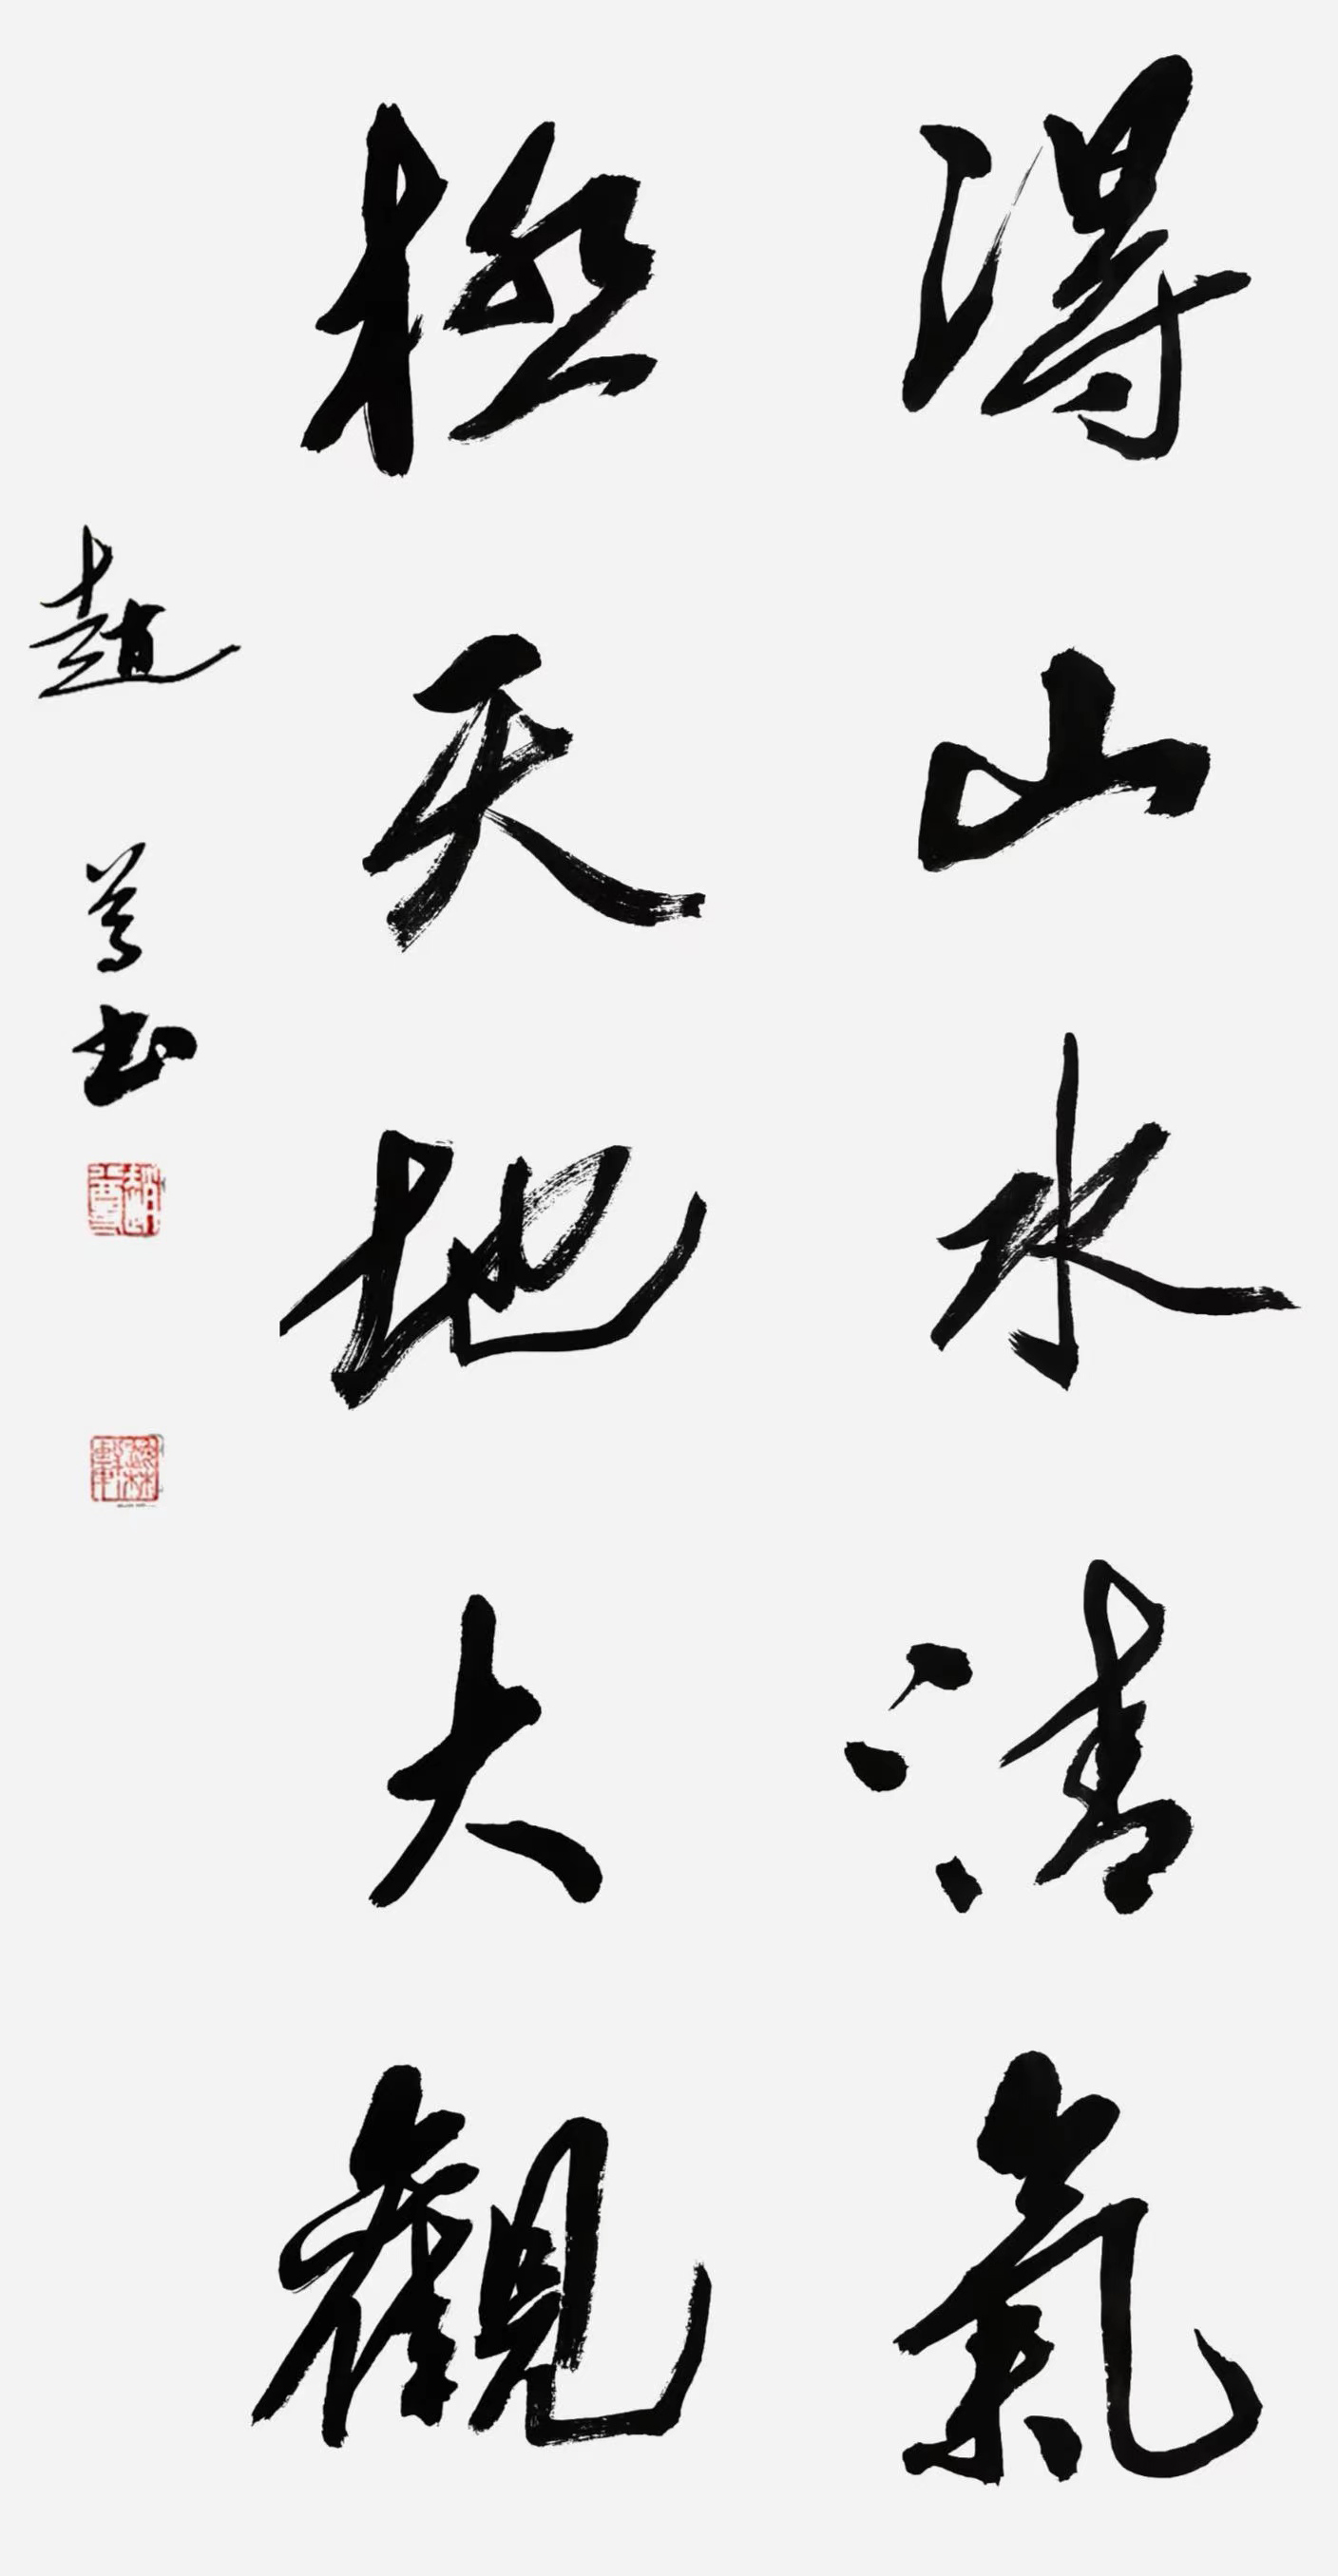 得山水清氣
極天地大觀
趙尊书